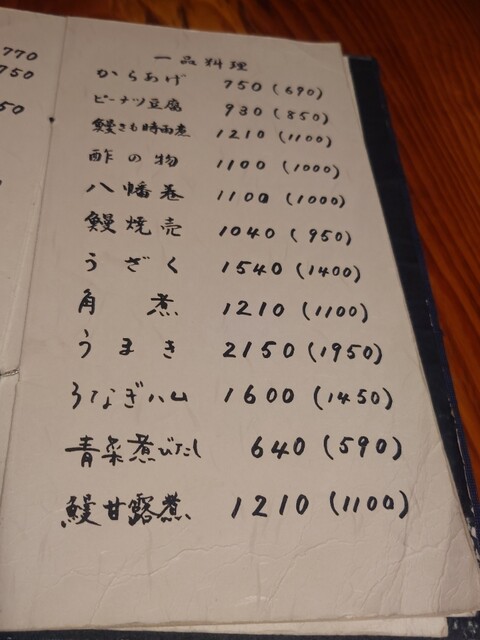 770
750
50
一品料理
からあげ 750 (690)
ピーナツ豆腐 930 (850)
鰻きも時雨煮 1210 (1100)
酢の物 1100 (1000)
八幡巻 1100 (1000)
鰻焼売 1040 (950)
うざく 1540 (1400)
角煮 1210 (1100)
うまき 2150 (1950)
うなぎハム 1600 (1450)
青菜煮びたし 640 (590)
鰻甘露煮 1210 (1100)